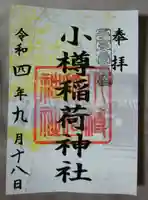 奉拝
小樽稲荷神社
令和四年九月十八日